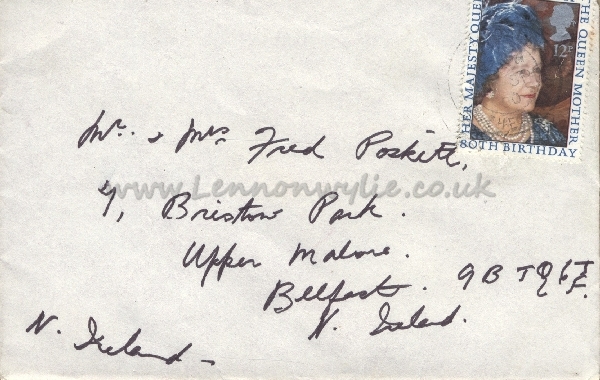 HER MAJESTY QUEEN
THE QUEEN MOTHER
12P
80TH BIRTHDAY
Mr. & Mrs Fred Poskitt,
www.Lennonwylie.co.uk
7, Bristow Park.
Upper Malone.
Belfast.
N. Ireland.
N. Ireland -